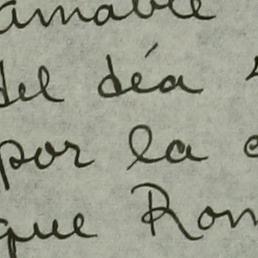 amable
del déa
por la
que Rom